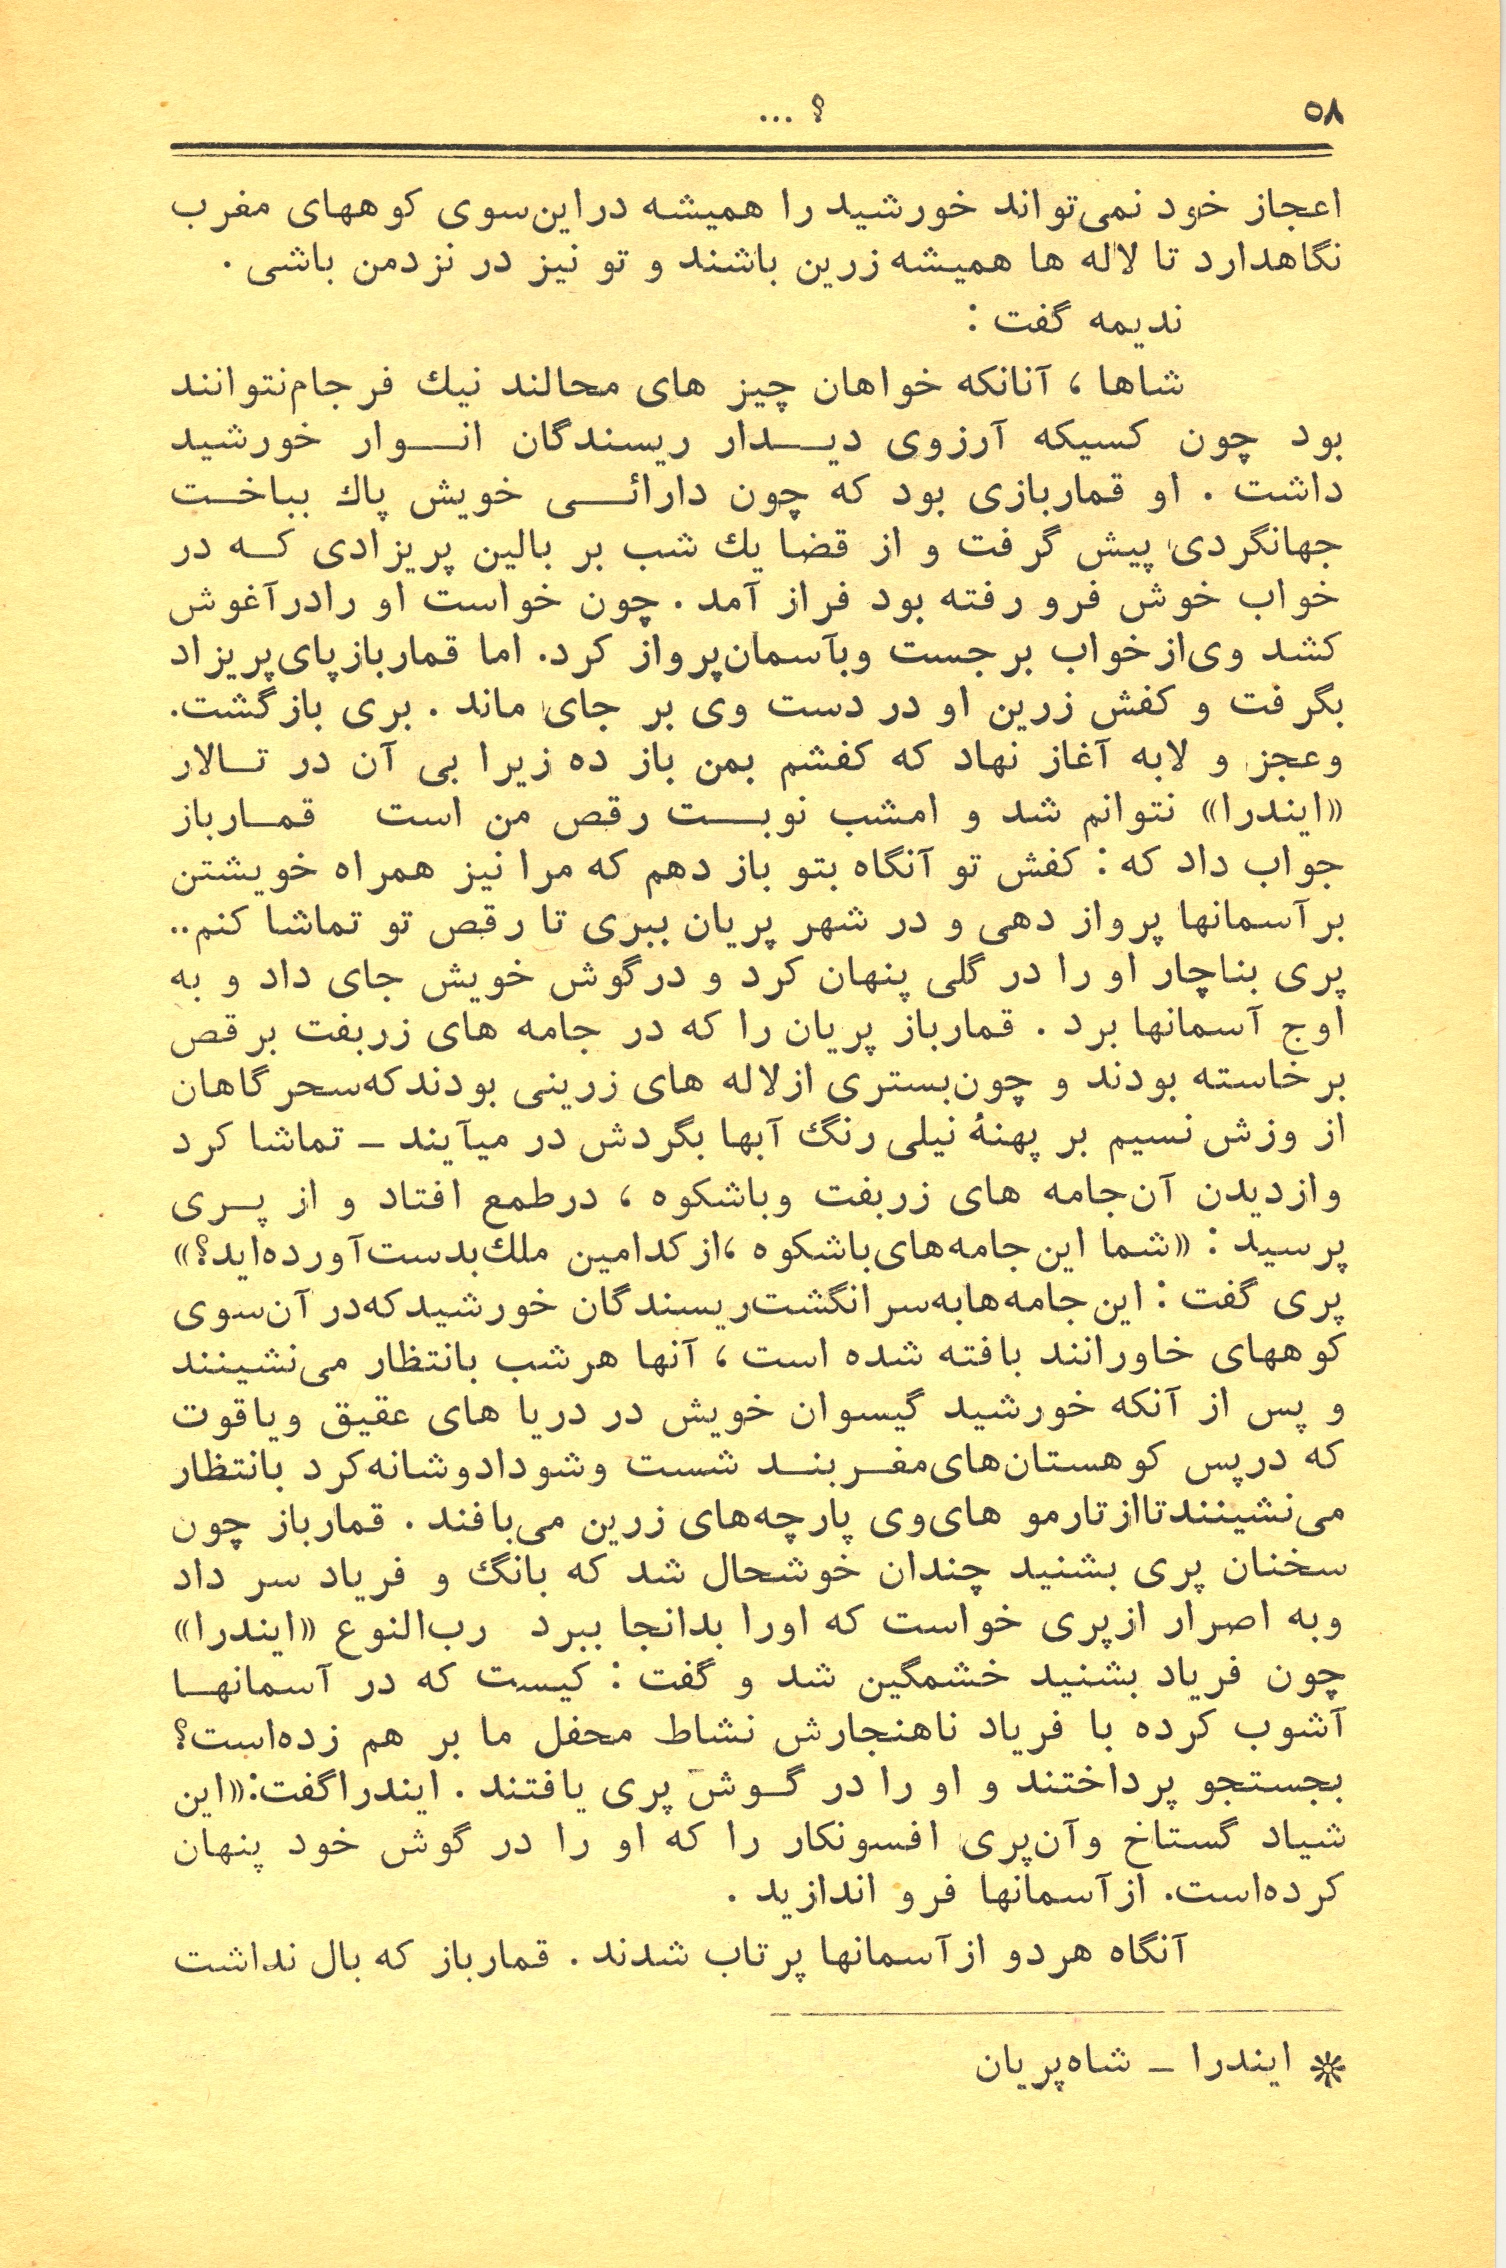 ۵۸
؟ ...
اعجاز خود نمی‌تواند خورشید را همیشه دراین‌سوی کوههای مغرب
نگاهدارد تا لاله ها همیشه زرین باشند و تو نیز در نزدمن باشی .
ندیمه گفت :
شاها ، آنانکه خواهان چیز های محالند نیك فرجام‌نتوانند
بود چون کسیکه آرزوی دیـــدار ریسندگان انـــوار خورشید
داشت . او قماربازی بود که چون دارائـــی خویش پاك بباخـت
جهانگردی پیش گرفت و از قضا یك شب بر بالین پریزادی کــه در
خواب خوش فرو رفته بود فراز آمد . چون خواست او رادرآغوش
کشد وی‌ازخواب برجست وبآسمان‌پرواز کرد. اما قماربازپای‌پریزاد
بگرفت و کفش زرین او در دست وی بر جای ماند . بری بازگشت.
وعجز و لابه آغاز نهاد که کفشم بمن باز ده زیرا بی آن در تــالار
«ایندرا» نتوانم شد و امشب نوبـــت رقص من است قمـــارباز
جواب داد که : کفش تو آنگاه بتو باز دهم که مرا نیز همراه خویشتن
برآسمانها پرواز دهی و در شهر پریان ببری تا رقص تو تماشا کنم..
پری بناچار او را در گلی پنهان کرد و درگوش خویش جای داد و به
اوج آسمانها برد . قمارباز پریان را که در جامه های زربفت برقص
برخاسته بودند و چون‌بستری ازلاله های زرینی بودندکه‌سحرگاهان
از وزش نسیم بر پهنهٔ نیلی رنگ آبها بگردش در میآیند ــ تماشا کرد
وازدیدن آن‌جامه های زربفت وباشکوه ، درطمع افتاد و از پـــری
پرسید : «شما این‌جامه‌های‌باشکوه ،ازکدامین ملك‌بدست‌آورده‌اید؟»
پری گفت : این‌جامه‌هابه‌سرانگشت‌ریسندگان خورشیدکه‌درآن‌سوی
کوههای خاورانند بافته شده است ، آنها هرشب بانتظار می‌نشینند
و پس از آنکه خورشید گیسوان خویش در دریا های عقیق ویاقوت
که درپس کوهستان‌های‌مغــربنــد شست وشودادوشانه‌کرد بانتظار
می‌نشینندتاازتارمو های‌وی پارچه‌های زرین می‌بافند . قمارباز چون
سخنان پری بشنید چندان خوشحال شد که بانگ و فریاد سر داد
وبه اصرار ازپری خواست که اورا بدانجا ببرد رب‌النوع «ایندرا»
چون فریاد بشنید خشمگین شد و گفت : کیست که در آسمانهــا
آشوب کرده با فریاد ناهنجارش نشاط محفل ما بر هم زده‌است؟
بجستجو پرداختند و او را در گــوش پری یافتند . ایندراگفت:«این
شیاد گستاخ وآن‌پری افسونکار را که او را در گوش خود پنهان
کرده‌است. ازآسمانها فرو اندازید .
آنگاه هردو ازآسمانها پرتاب شدند . قمارباز که بال نداشت
❊ ایندرا ــ شاه‌پریان